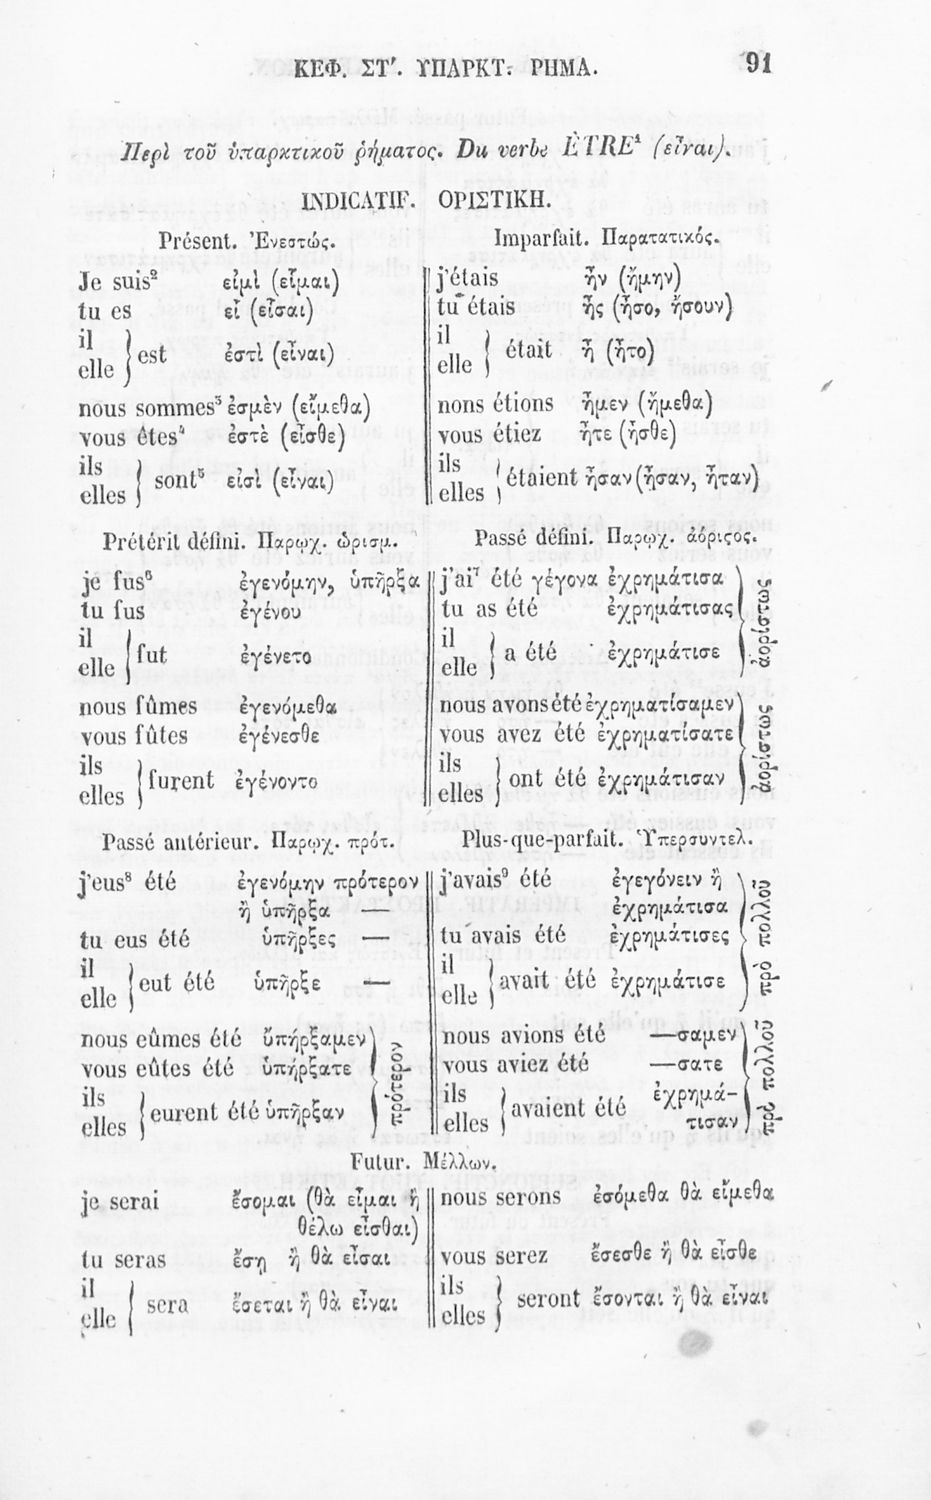 ΚΕΦ. ΣΤʹ. ΥΠΑΡΚΤ. ΡΗΜΑ. 91
Περὶ τοῦ ὑπαρκτικοῦ ῥήματος. Du verbe ÊTRE¹ (εἶναι).
INDICATIF. ΟΡΙΣΤΙΚΗ.
Présent. Ἐνεστώς.
Je suis² εἰμὶ (εἶμαι)
tu es εἶ (εἶσαι)
il
elle } est ἐστὶ (εἶναι)
nous sommes³ ἐσμὲν (εἴμεθα)
vous êtes⁴ ἐστὲ (εἶσθε)
ils
elles } sont⁵ εἰσὶ (εἶναι)
Imparfait. Παρατατικός.
j'étais ἦν (ἤμην)
tu étais ἦς (ἦσο, ἤσουν)
il
elle } était ἦ (ἦτο)
nons étions ἦμεν (ἤμεθα)
vous étiez ἦτε (ἦσθε)
ils
elles } étaient ἦσαν (ἦσαν, ἦταν)
Prétérit défini. Παρῳχ. ὡρισμ.
je fus⁶ ἐγενόμην, ὑπῆρξα
tu fus ἐγένου
il
elle } fut ἐγένετο
nous fûmes ἐγενόμεθα
vous fûtes ἐγένεσθε
ils
elles } furent ἐγένοντο
Passé défini. Παρῳχ. ἀόριϛος.
j'ai⁷ été γέγονα ἐχρημάτισα
tu as été ἐχρημάτισας
il
elle } a été ἐχρημάτισε
ἀορίστως
nous avons été ἐχρηματίσαμεν
vous avez été ἐχρηματίσατε
ils
elles } ont été ἐχρημάτισαν
ἀορίστως
Passé antérieur. Παρῳχ. πρότ.
j'eus⁸ été ἐγενόμην πρότερον
ἢ ὑπῆρξα —
tu eus été ὑπῆρξες —
il
elle } eut été ὑπῆρξε —
nous eûmes été ὑπήρξαμεν
vous eûtes été ὑπήρξατε
ils
elles } eurent été ὑπῆρξαν
πρότερον
Plus-que-parfait. Ὑπερσυντελ.
j'avais⁹ été ἐγεγόνειν ἢ
ἐχρημάτισα
tu avais été ἐχρημάτισες
il
elle } avait été ἐχρημάτισε
πρὸ πολλοῦ
nous avions été —σαμεν
vous aviez été —σατε
ils
elles } avaient été ἐχρημά-
τισαν
πρὸ πολλοῦ
Futur. Μέλλων.
je serai ἔσομαι (θὰ εἶμαι ἢ
θέλω εἶσθαι)
tu seras ἔσῃ ἢ θὰ εἶσαι
il
elle } sera ἔσεται ἢ θὰ εἶναι
nous serons ἐσόμεθα θὰ εἴμεθα
vous serez ἔσεσθε ἢ θὰ εἶσθε
ils
elles } seront ἔσονται ἢ θὰ εἶναι